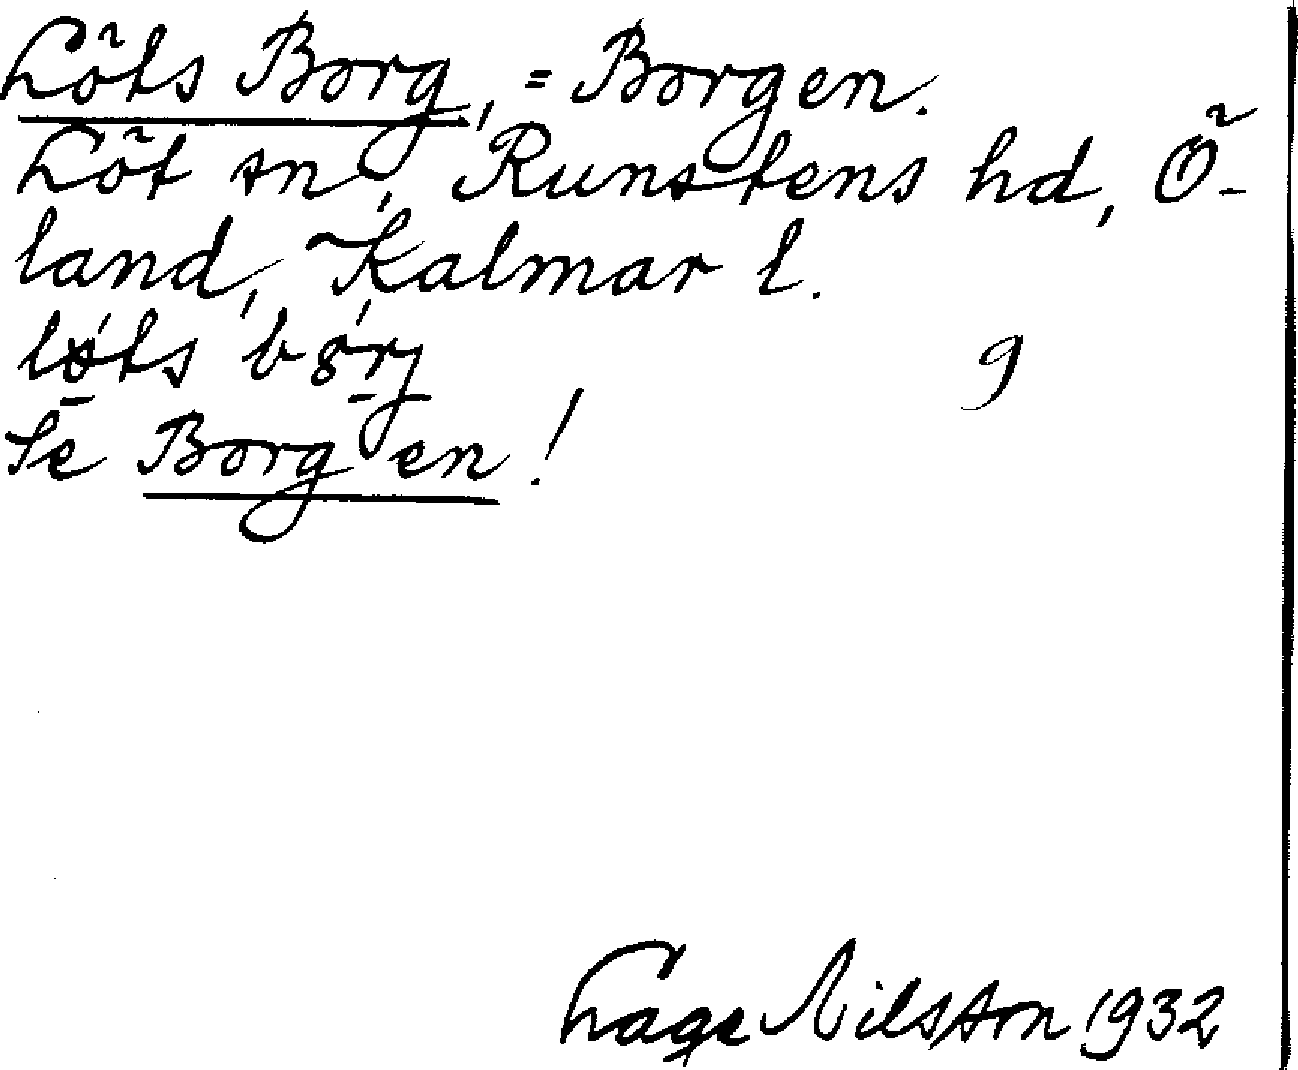 Löts Borg, = Borgen.
Löt sn, Runstens hd, Ö-
land, Kalmar l.
g
Se Borgen!
Lage Nilsson 1932